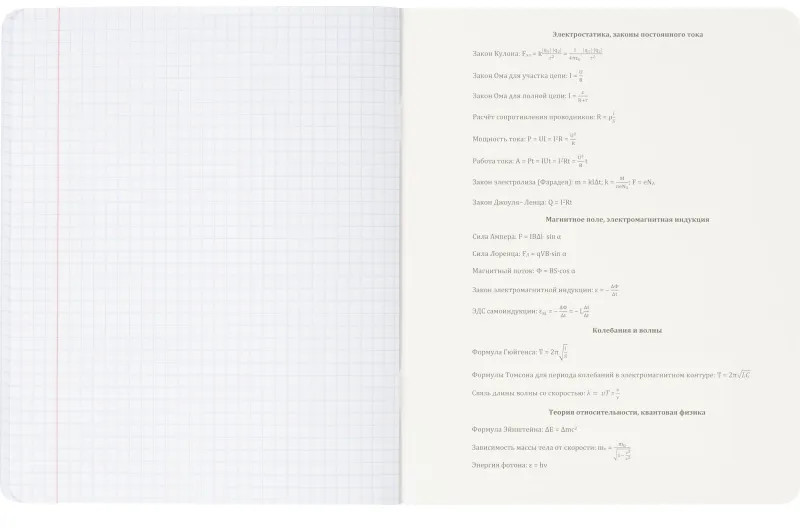 Электростатика, законы постоянного тока
Закон Кулона: Fэл = k|q₁|·|q₂|/r² = 1/4πε₀ |q₁|·|q₂|/r²
Закон Ома для участка цепи: I = U/R
Закон Ома для полной цепи: I = ε/R+r
Расчёт сопротивления проводников: R = ρ l/S
Мощность тока: P = UI = I²R = U²/R
Работа тока: A = Pt = IUt = I²Rt = U²/R t
Закон электролиза (Фарадея): m = kIΔt; k = F = eNA
Закон Джоуля– Ленца: Q = I²Rt
Магнитное поле, электромагнитная индукция
Сила Ампера: F = IBΔl· sin α
Сила Лоренца: FЛ = qVB·sin α
Магнитный поток: Ф = BS·cos α
Закон электромагнитной индукции: ε = − ΔФ/Δt
ЭДС самоиндукции: εsi = − ΔФ/Δt = − L ΔI/Δt
Колебания и волны
Формула Гюйгенса: T = 2π√l/g
Формулы Томсона для периода колебаний в электромагнитном контуре: T = 2π√LC
Связь длины волны со скоростью: λ = υT = υ/ν
Теория относительности, квантовая физика
Формула Эйнштейна: ΔE = Δmc²
Зависимость массы тела от скорости: mv = m₀/√1−v²/c²
Энергия фотона: ε = hν